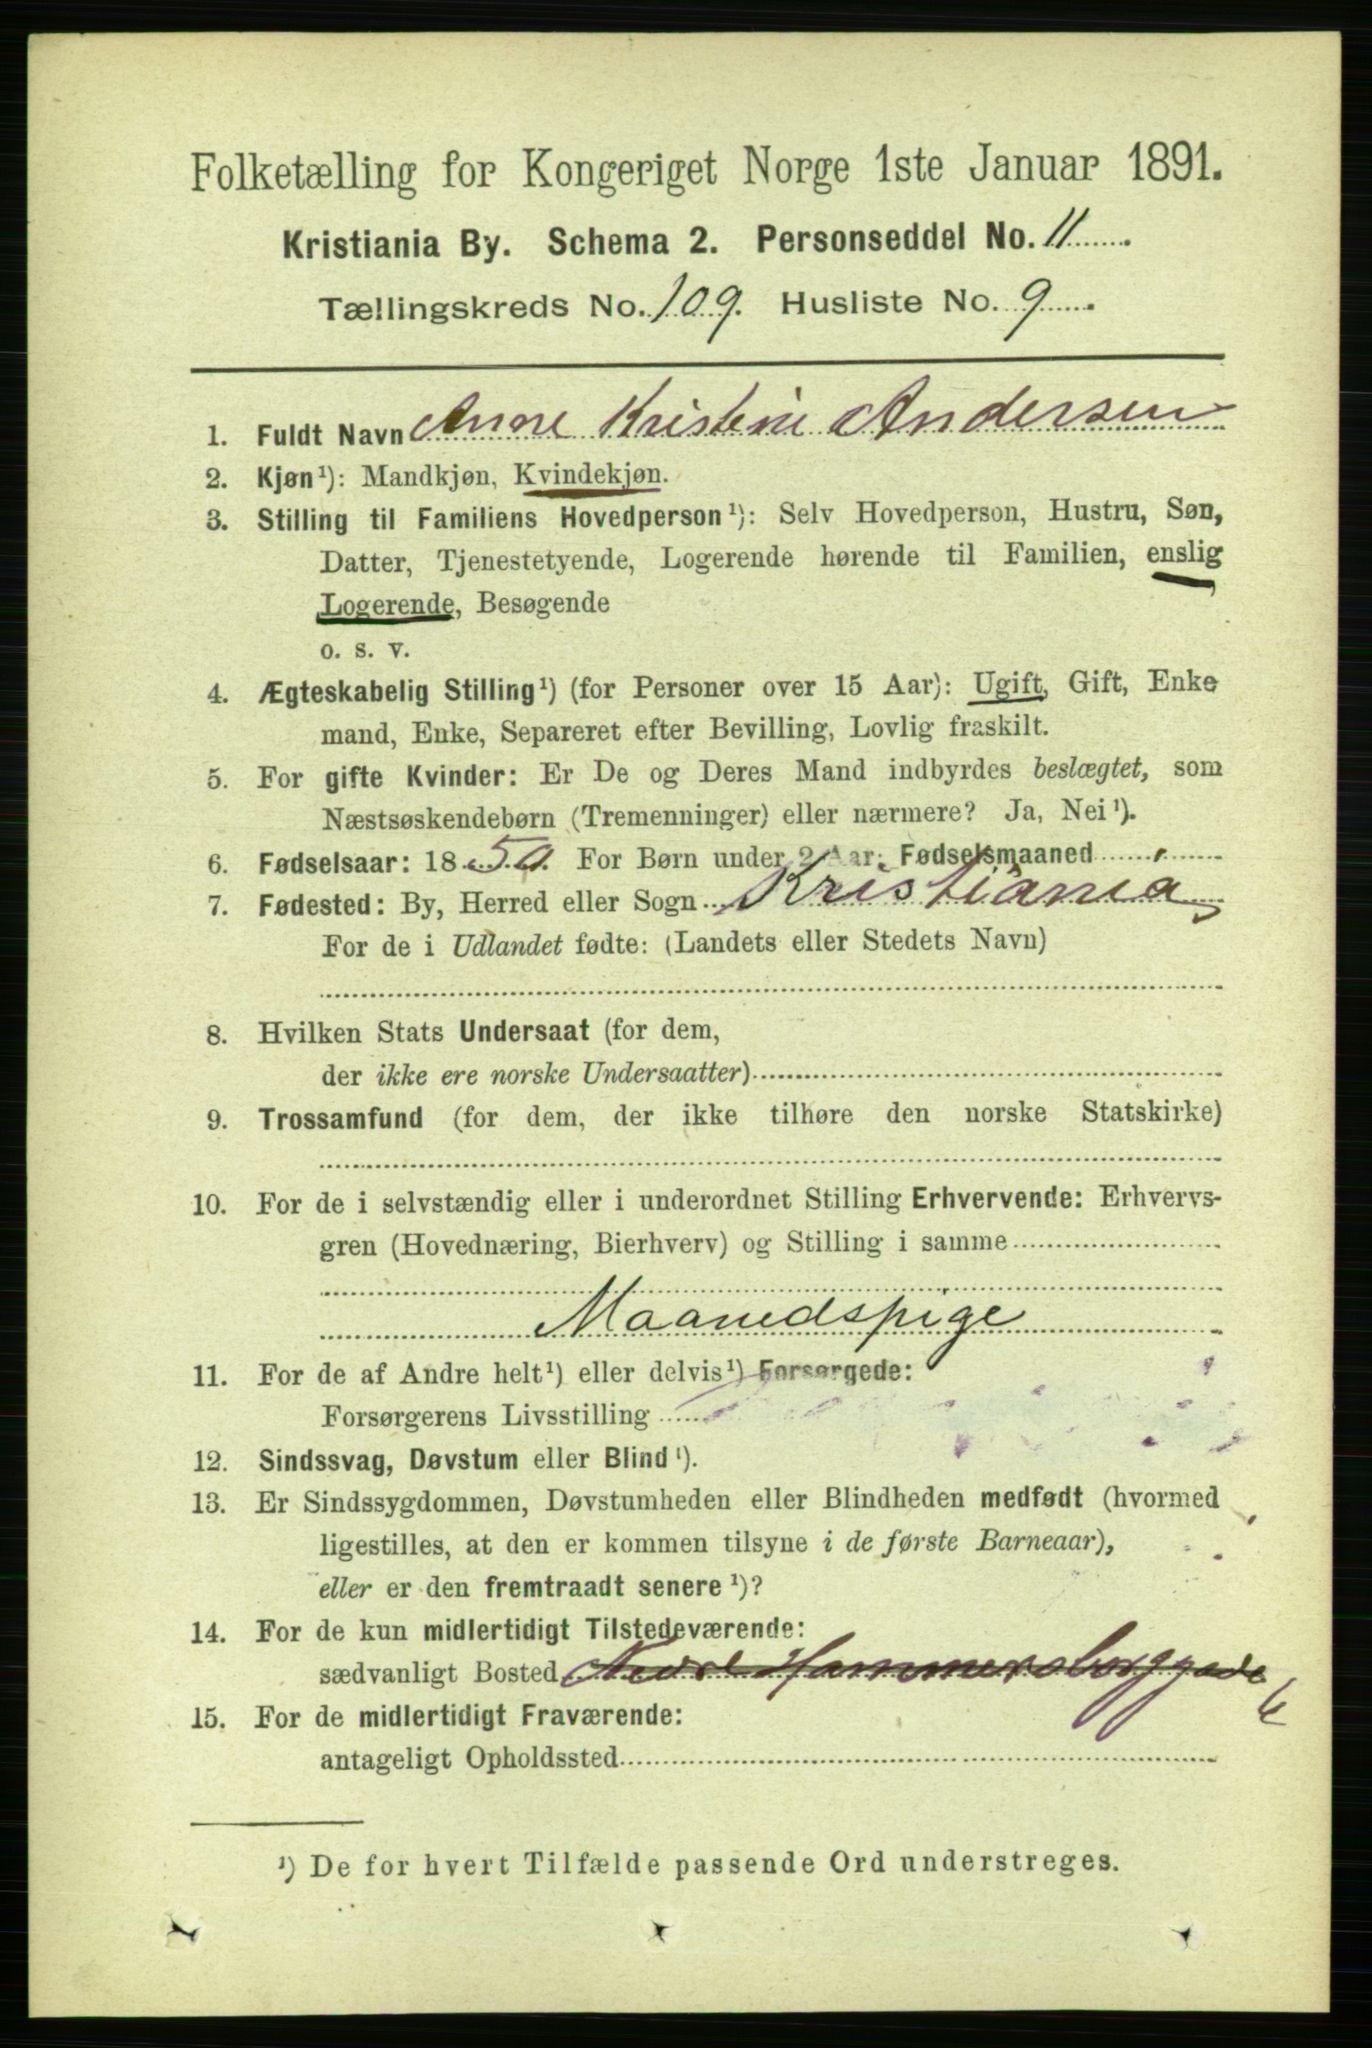 Folketælling for Kongeriget Norge 1ste Januar 1891.
Kristiania By. Schema 2. Personseddel No. 11
Tællingskreds No. 109. Husliste No. 9
1. Fuldt Navn Anne Kristine Andersen
2. Kjøn¹): Mandkjøn, Kvindekjøn.
3. Stilling til Familiens Hovedperson¹): Selv Hovedperson, Hustru, Søn,
Datter, Tjenestetyende, Logerende hørende til Familien, enslig
Logerende, Besøgende
o. s. v.
4. Ægteskabelig Stilling¹) (for Personer over 15 Aar): Ugift, Gift, Enke
mand, Enke, Separeret efter Bevilling, Lovlig fraskilt.
5. For gifte Kvinder: Er De og Deres Mand indbyrdes beslægtet, som
Næstsøskendebørn (Tremenninger) eller nærmere? Ja, Nei¹).
6. Fødselsaar: 1850. For Børn under 2 Aar: Fødselsmaaned
7. Fødested: By, Herred eller Sogn Kristiania
For de i Udlandet fødte: (Landets eller Stedets Navn)
8. Hvilken Stats Undersaat (for dem,
der ikke ere norske Undersaatter)
9. Trossamfund (for dem, der ikke tilhøre den norske Statskirke)
10. For de i selvstændig eller i underordnet Stilling Erhvervende: Erhvervs-
gren (Hovednæring, Bierhverv) og Stilling i samme
Maanedspige
11. For de af Andre helt¹) eller delvis¹) Forsørgede:
Forsørgerens Livsstilling
12. Sindssvag, Døvstum eller Blind¹).
13. Er Sindssygdommen, Døvstumheden eller Blindheden medfødt (hvormed
ligestilles, at den er kommen tilsyne i de første Barneaar),
eller er den fremtraadt senere¹)?
14. For de kun midlertidigt Tilstedeværende:
sædvanligt Bosted Nedre Hammersborggade 6
15. For de midlertidigt Fraværende:
antageligt Opholdssted
¹) De for hvert Tilfælde passende Ord understreges.